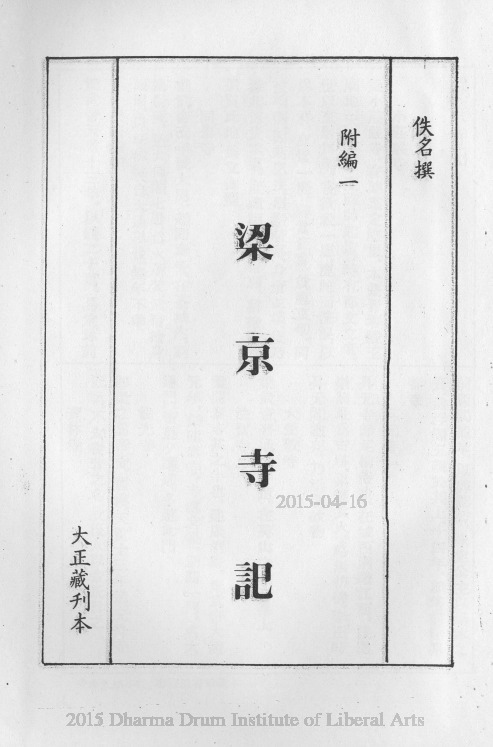 佚名撰
附編一
梁京寺記
大正藏刋本
2015-04-16
2015 Dharma Drum Institute of Liberal Arts